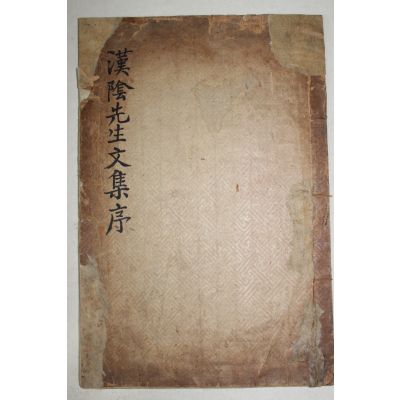 漢陰先生文集序